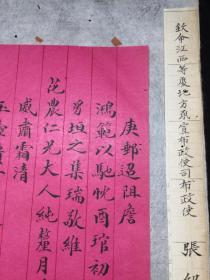 欽命江西等處地方承宣布政使司布政使
張紹
庚郵遞阻詹
鴻範以馳忱酉琯初
另垣之集瑞敬維
芝農仁兄大人純釐月
威肅霜清